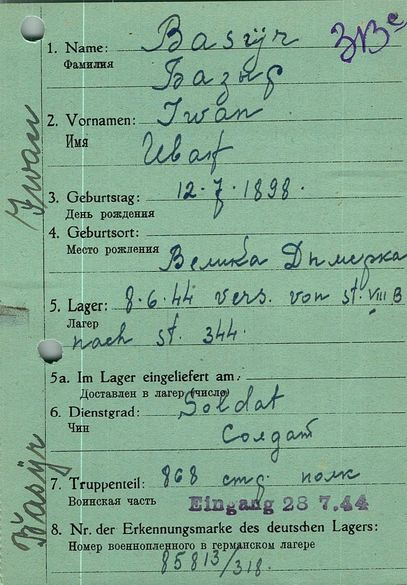 ЗВс
1. Name: Basijr
Фамилия Базыр
2. Vornamen: Iwan
Имя Иван
3. Geburtstag: 12.7.1898.
День рождения
4. Geburtsort:
Место рождения Велика Димерка
5. Lager: 8.6.44 vers. von st. VIII B
Лагер nach st. 344.
5a. Im Lager eingeliefert am:
Доставлен в лагер (число)
6. Dienstgrad: Soldat
Чин Солдат
7. Truppenteil: 868 стр. полк
Воинская часть Eingang 28 7.44
8. Nr. der Erkennungsmarke des deutschen Lagers:
Номер военнопленного в германском лагере
85813/318.
Iwan
Basijr